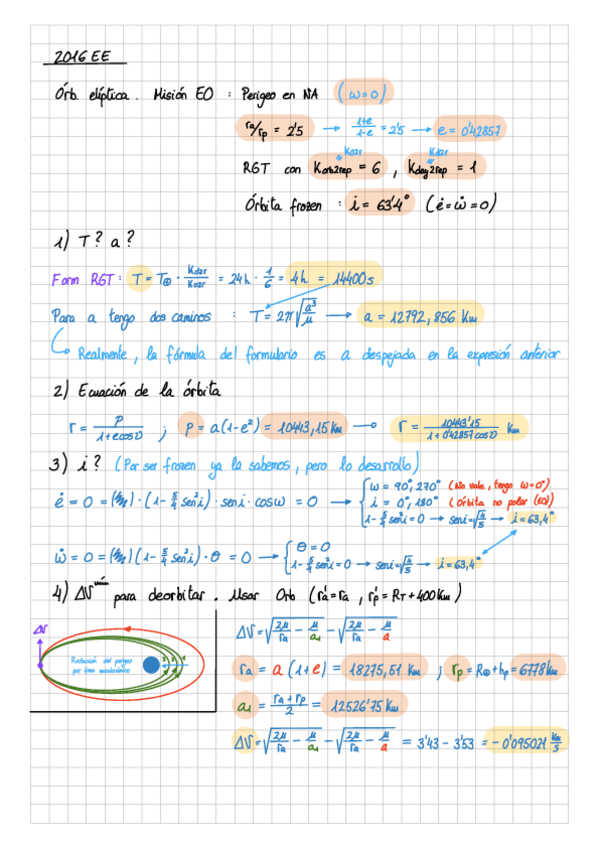 2016 EE
Órb. elíptica. Misión EO : Perigeo en NA (ω=0)
ra/rp = 2'5 → 1+e/1-e = 2'5 → e = 0'42857
RGT con Korb2rep = 6 , Kday2rep = 1
Órbita frozen : i = 63'4° (ė = ω̇ = 0)
1) T? a?
Form RGT: T = T⊕ · Kd2r/Ko2r = 24h · 1/6 = 4h = 14400s
Para a tengo dos caminos : T = 2π√(a³/μ) → a = 12792,856 Km
Realmente, la fórmula del formulario es a despejada en la expresión anterior
2) Ecuación de la órbita
r = p/1+ecosϑ ; p = a(1-e²) = 10443,15 Km → r = 10443'15/1+0'42857cosϑ Km
3) i? (Por ser frozen ya la sabemos, pero lo desarrollo)
ω = 90°, 270° (No vale, tengo ω=0°)
ė = 0 = · (1-5/4 sen²i) · seni · cosω = 0 → i = 0°, 180° (Órbita no polar (EO))
1-5/4 sen²i = 0 → seni = √4/5 → i = 63,4°
θ = 0
ω̇ = 0 = (1-5/4 sen²i) · θ = 0 → 1-5/4 sen²i = 0 → seni = √4/5 → i = 63,4°
4) ΔV mín para deorbitar. Usar Orb (r'a = ra , r'p = RT + 400 Km)
ΔV
Reducción del perigeo
por freno aerodinámico
ΔV = √(2μ/ra - μ/a1) - √(2μ/ra - μ/a)
ra = a (1+e) = 18275,51 Km ; rp = R⊕ + hp = 6778 Km
a1 = ra + rp/2 = 12526'75 Km
ΔV = √(2μ/ra - μ/a1) - √(2μ/ra - μ/a) = 3'43 - 3'53 = -0'095021 Km/s